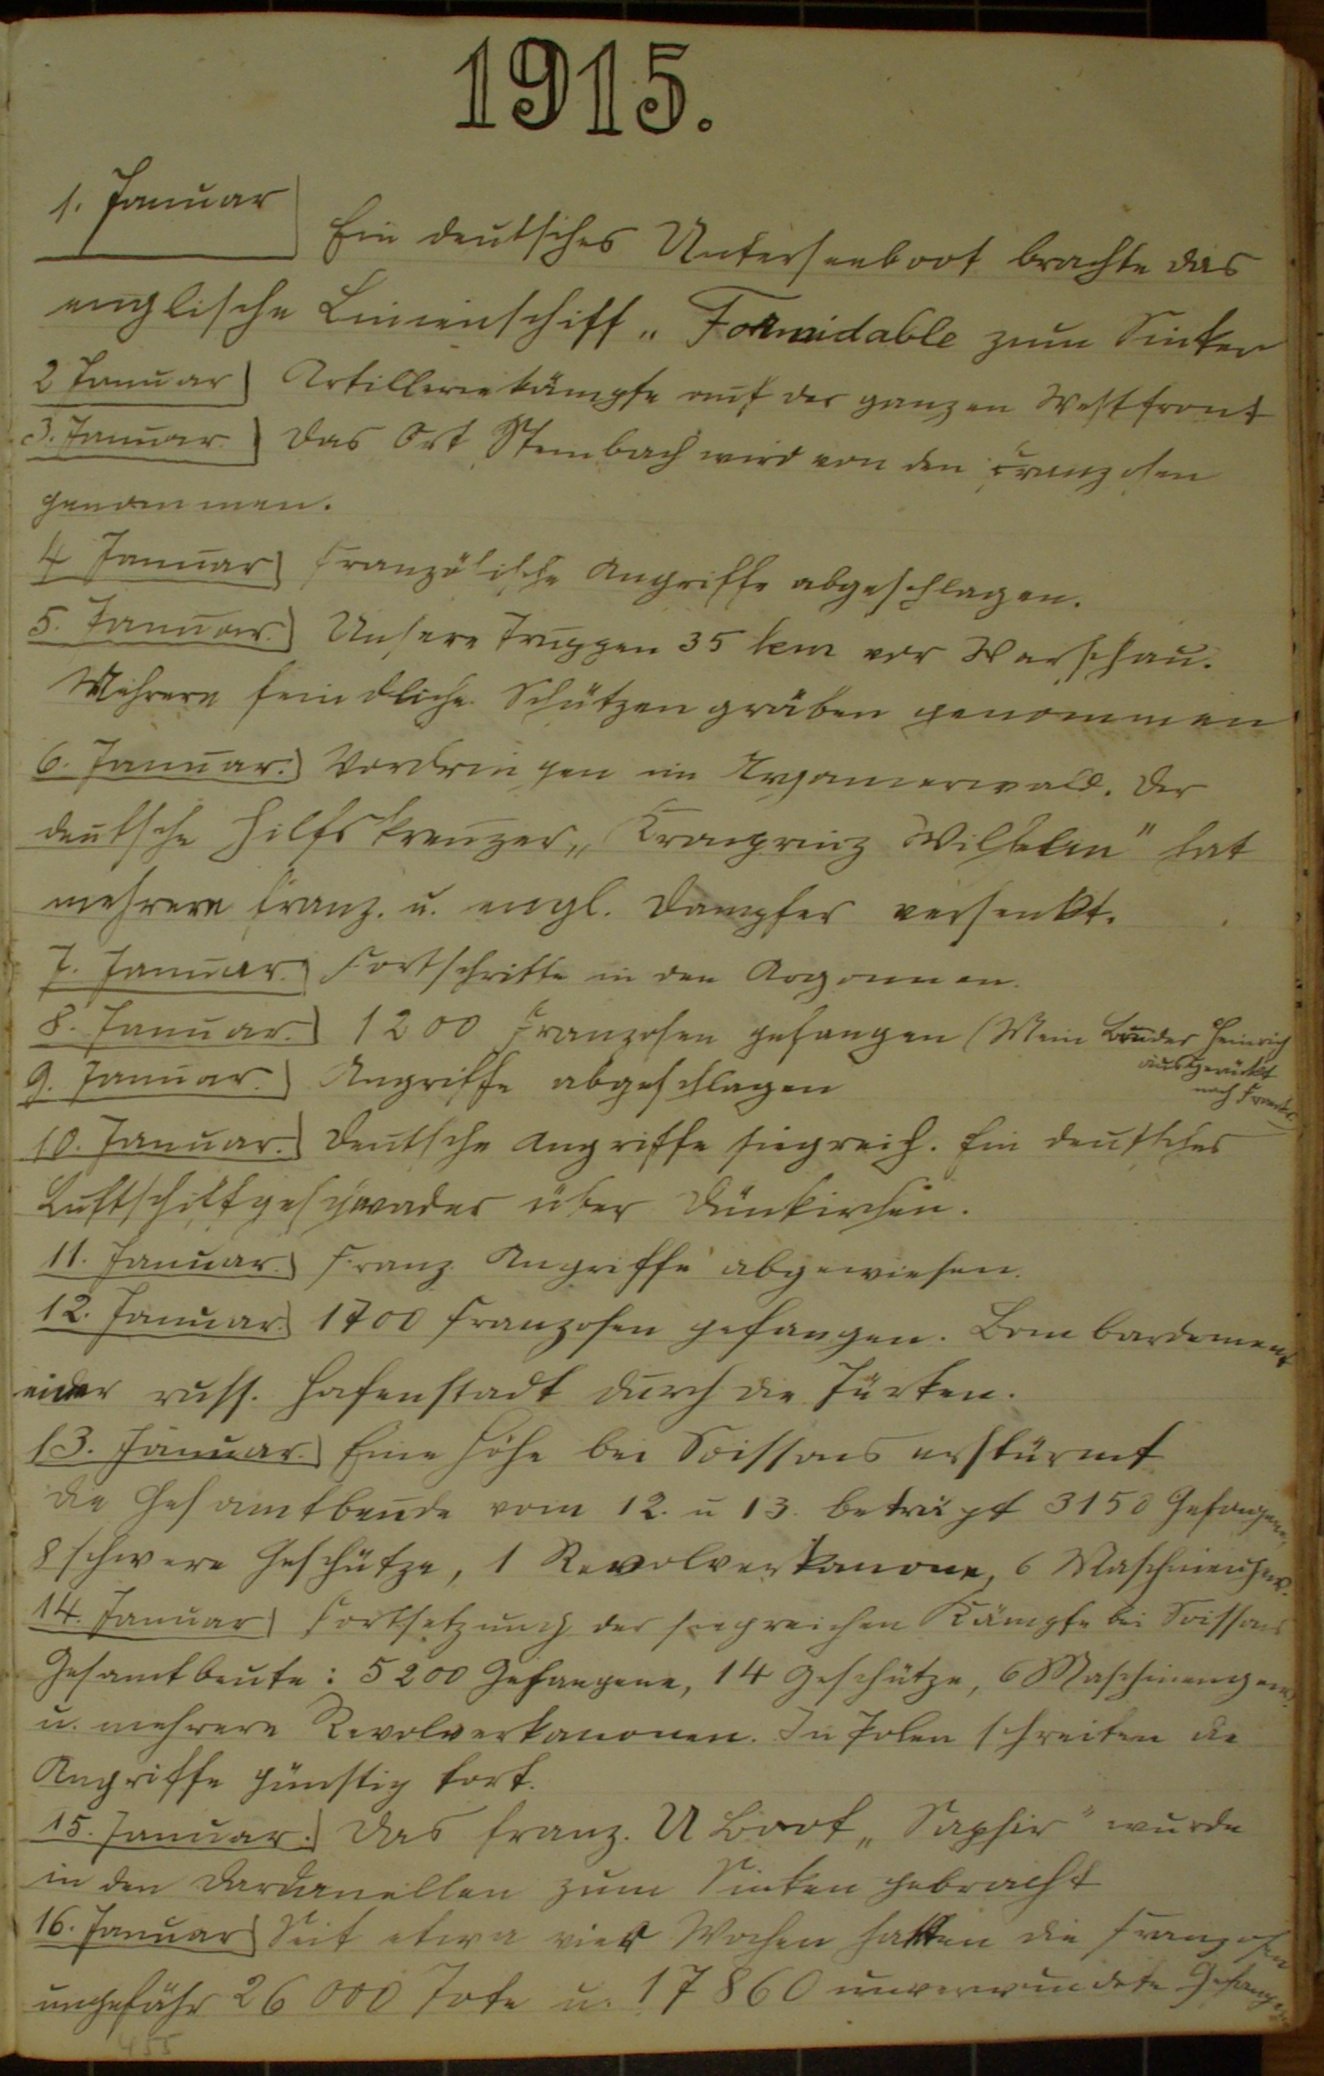 1915.
1. Januar
Ein deutsches Unterseeboot brachte das
englische Linienschiff „Formidable zum Sinken
2 Januar Artilleriekämpfe auf der ganzen Westfront
3. Januar. Das Ort Steinbach wird von den Franzosen
genommen.
4 Januar Französische Angriffe abgeschlagen.
5. Januar. Unsere Truppen 35 km vor Warschau.
Mehrere feindliche Schützengräben genommen
6. Januar. Vordringen im Argonnerwald. Der
deutsche Hilfskreuzer „Kronprinz Wilhelm" hat
mehrere franz. u. engl. Dampfer versenkt.
7. Januar. Fortschritte in den Argonnen.
8. Januar. 1200 Franzosen gefangen (Mein Bruder Heinrich
ausgerückt
nach Frankr.)
9. Januar. Angriffe abgeschlagen
10. Januar. Deutsche Angriffe siegreich. Ein deutsches
Luftschiffgeschwader über Dünkirchen.
11. Januar. Franz. Angriffe abgewiesen.
12. Januar. 1700 Franzosen gefangen. Bombardement
einer russ. Hafenstadt durch die Türken.
13. Januar. Eine Höhe bei Soissons erstürmt
die Gesamtbeude vom 12. u 13. beträgt 3150 Gefangene,
8 schwere Geschütze, 1 Revolverkanone, 6 Maschinengew.
14. Januar Fortsetzung der siegreichen Kämpfe bei Soissons
Gesamtbeute: 5200 Gefangene, 14 Geschütze, 6 Maschinengew.
u. mehrere Revolverkanonen. In Polen schreiten die
Angriffe günstig fort.
15. Januar. Das franz. U Boot „Saphir" wurde
in den Dardanellen zum Sinken gebracht
16. Januar Seit etwa vier Wochen hatten die Franzosen
ungefähr 26 000 Tote u. 17 860 unverwundete Gefangene
455